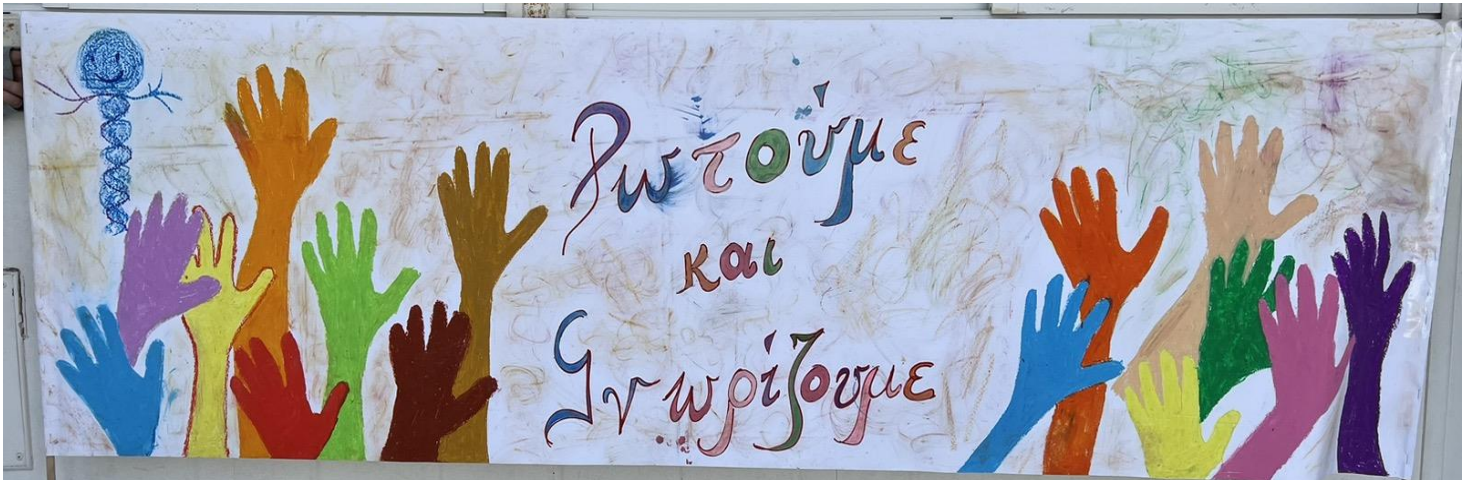 Ρωτούμε
και
Γνωρίζουμε